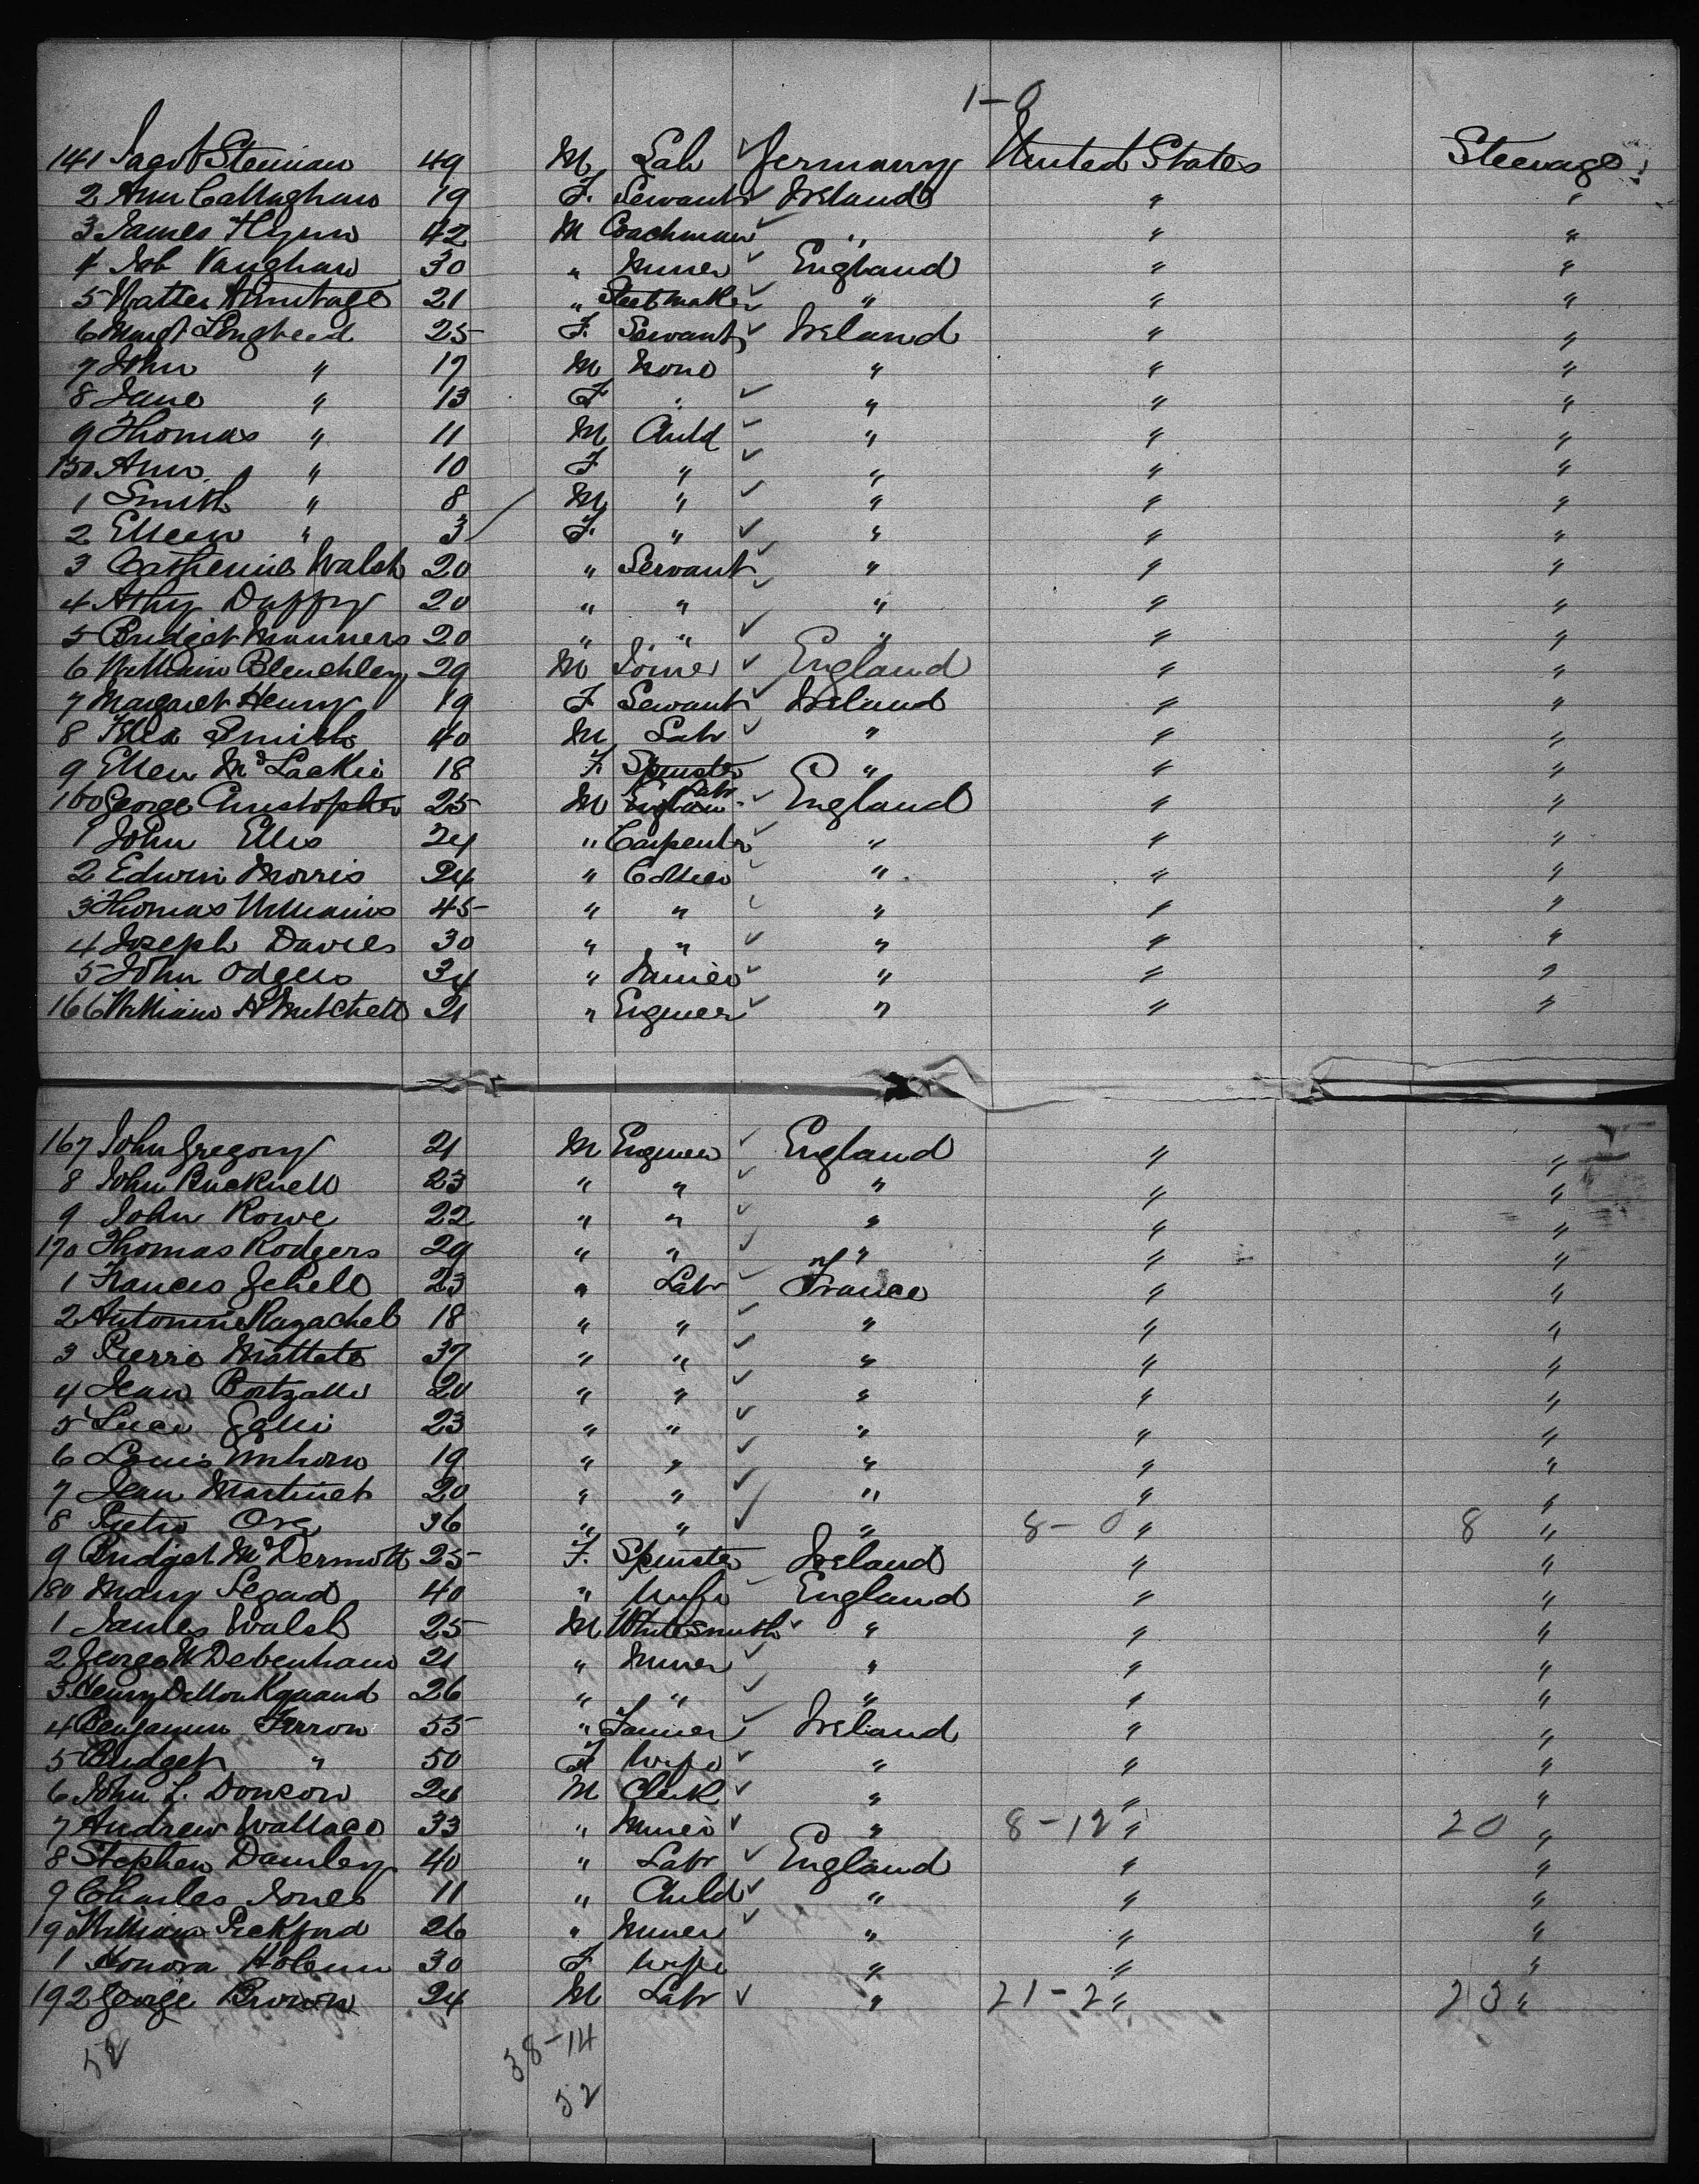 1-0
141 Jacob Steiman 49 M Lab ✓ Germany United States Steerage
2 Ann Callaghan 19 F. Servant ✓ Ireland " "
3 James Flynn 42 M Coachman ✓ " " "
4 Job Vaughan 30 " Miner ✓ England " "
5 Walter Armitage 21 " maker ✓ " " "
6 Margt 25 F. Servant ✓ Ireland " "
7 John " 17 M None " " "
8 Jane " 13 F " ✓ " " "
9 Thomas " 11 M Child ✓ " " "
150 Ann " 10 F " ✓ " " "
1 Smith " 8 M " ✓ " " "
2 Elleen " 3 F. " ✓ " " "
3 Catherine Walsh 20 " Servant ✓ " " "
4 Duffy 20 " " ✓ " " "
5 Bridget Manners 20 " " ✓ " " "
6 William Blenchley 29 M Joiner ✓ England " "
7 Margaret Henry 19 F Servant ✓ Ireland " "
8 Smith 40 M Labr ✓ " " "
9 Ellen 18 F. Spinster " " "
160 George Christopher 25 M Labr ✓ England " "
1 John Ellis 24 " Carpenter ✓ " " "
2 Edwin Morris 24 " Collier ✓ " " "
3 Thomas Williams 45 " " ✓ " " "
4 Joseph Davies 30 " " ✓ " " "
5 John Odgers 34 " ✓ " " "
166 William H Mitchell 21 " Engineer ✓ " " "
167 John Gregory 21 M Engineer ✓ England " "
8 John Bucknell 23 " " ✓ " " "
9 John Rowe 22 " " ✓ " " "
170 Thomas Rodgers 29 " " ✓ " " "
1 Frances 23 " Labr ✓ France " "
2 18 " " ✓ " " "
3 Pierre 37 " " ✓ " " "
4 Jean 20 " " ✓ " " "
5 23 " " ✓ " " "
6 Louis 19 " " ✓ " " "
7 Jean Martinet 20 " " ✓ " " "
8 Pietro 36 " " ✓ " 8-0 " 8 "
9 Bridget McDermott 25 F. Spinster Ireland " "
180 Mary 40 " Wife England " "
1 James Walsh 25 M Whitesmith ✓ " " "
2 George W Debenham 21 " Miner ✓ " " "
3 Henry 26 " " ✓ " " "
4 Benjamin Farron 55 " ✓ Ireland " "
5 Bridget " 50 F Wife ✓ " " "
6 John L. 24 M Clerk ✓ " " "
7 Andrew Wallace 33 " Miner ✓ " 8-12 " 20 "
8 Stephen 40 " Labr ✓ England " "
9 Charles Jones 11 " Child ✓ " " "
190 William Pickford 26 " Miner ✓ " " "
1 Honora 30 F Wife " " "
192 George Brown 24 M Labr ✓ " 21-2 " 23 "
52 38-14
52